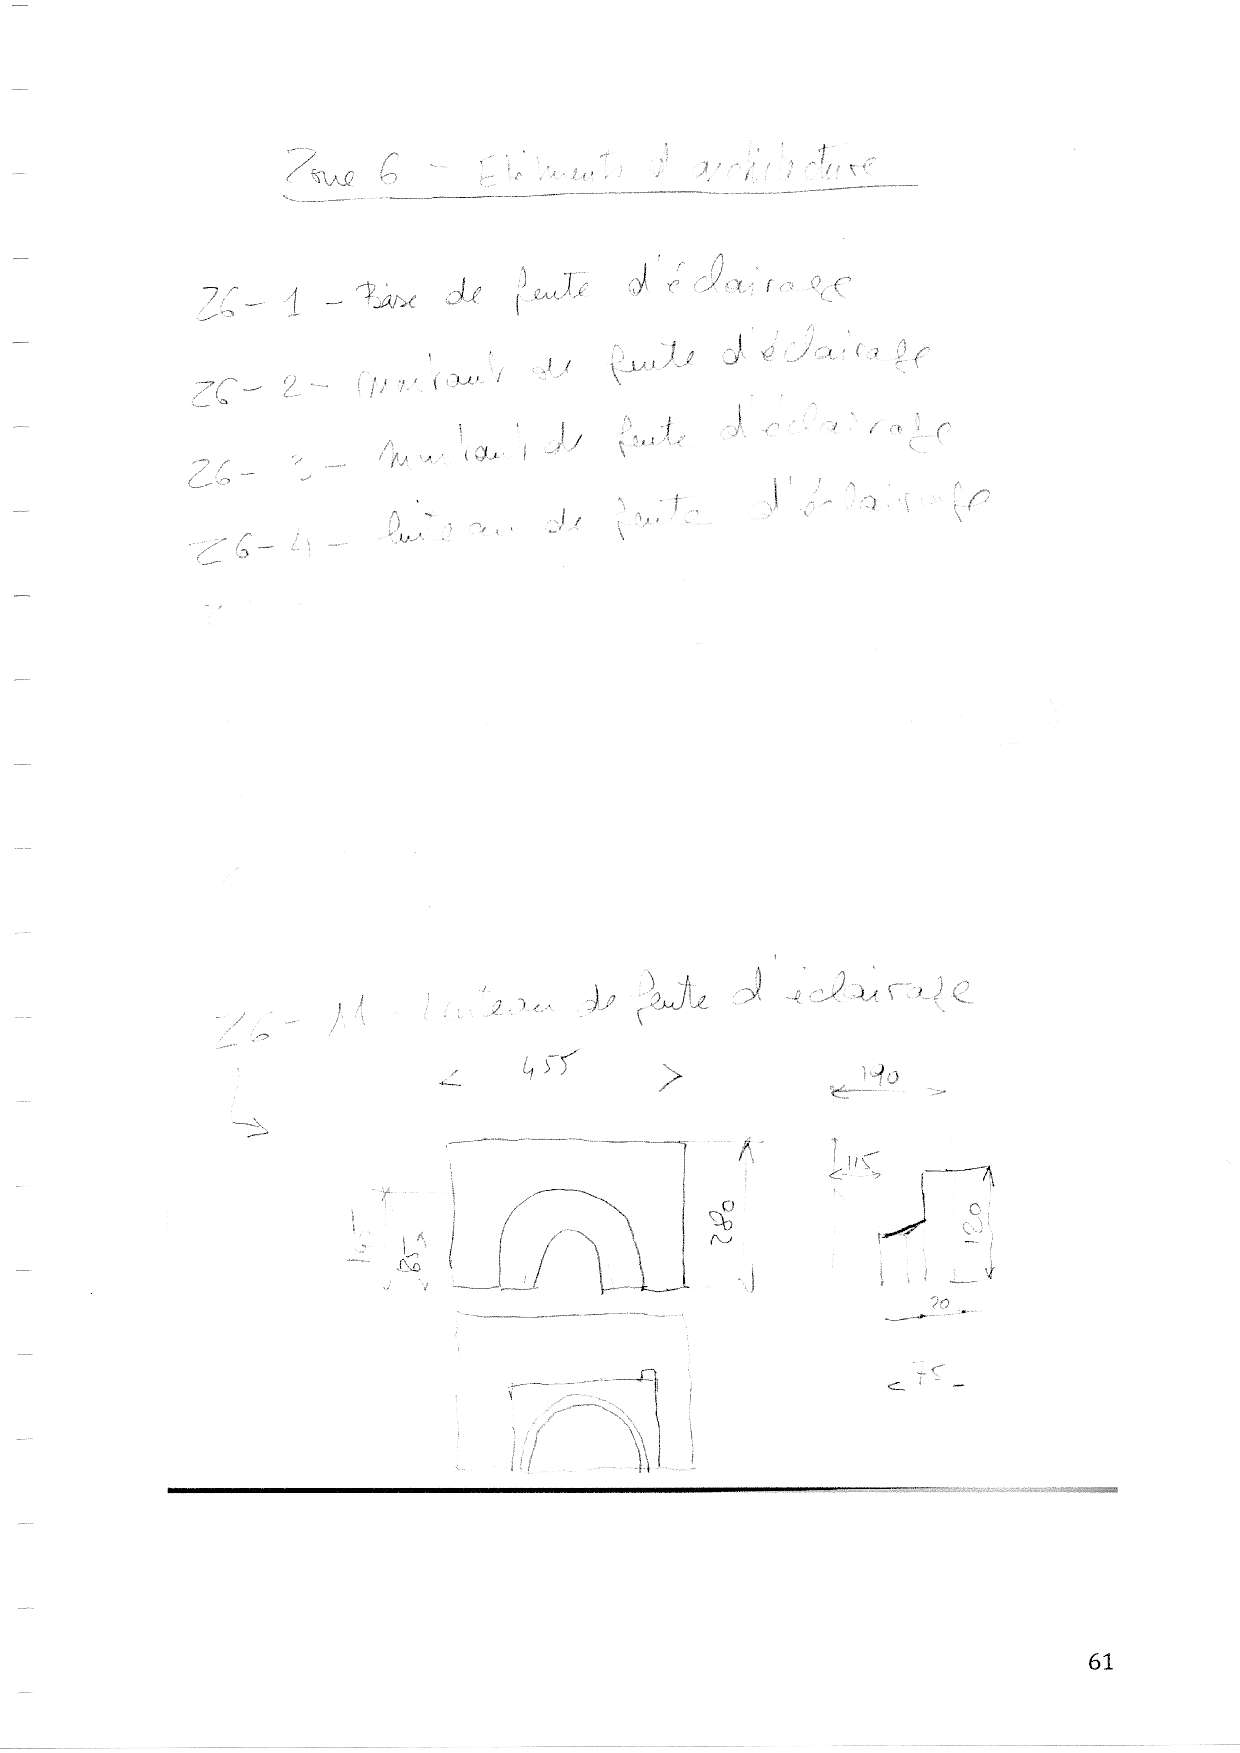 Zone 6 - Eléments d'architecture
Z6-1 - Base de fente d'éclairage
Z6-2- Montant de fente d'éclairage
Z6-3- Montant de fente d'éclairage
Z6-4- linteau de fente d'éclairage
Z6-11- Linteau de fente d'éclairage
455
190
115
280
180
145
85
20
75
61